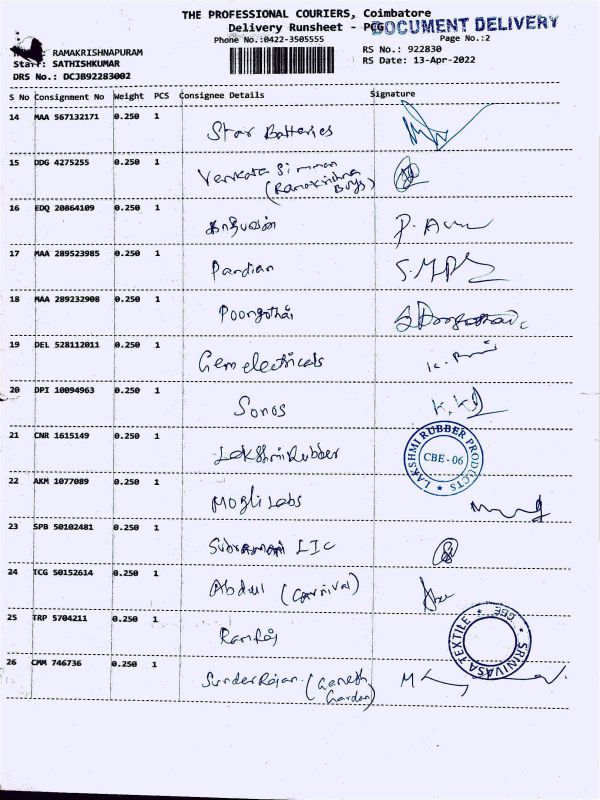 THE PROFESSIONAL COURIERS, Coimbatore
Delivery Runsheet - PCG
DOCUMENT DELIVERY
Phone No.:0422-3505555
Page No.:2
: RAMAKRISHNAPURAM
RS No.: 922830
Staff: SATHISHKUMAR
RS Date: 13-Apr-2022
DRS No.: DCJB92283002
S No Consignment No Weight PCS Consignee Details Signature
14 MAA 567132171 0.250 1 Star Batteries
15 DDG 4275255 0.250 1 Venkata Simman
(Ramakrishna
Boys)
16 EDQ 20864109 0.250 1
17 MAA 289523985 0.250 1 Pandian
18 MAA 289232908 0.250 1
19 DEL 528112011 0.250 1 Gem electricals
20 DPI 10094963 0.250 1 Sonos
21 CNR 1615149 0.250 1 Lakshmi Rubber
LAKSHMI RUBBER PRODUCTS ★
CBE - 06
22 AKM 1077089 0.250 1 Mogli Labs
23 SPB 50102481 0.250 1 Subramani LIC
24 TCG 50152614 0.250 1 Abdul (Carnival)
25 TRP 5704211 0.250 1
★ SRINIVASA TEXTILE ★ CBE
26 CMM 746736 0.250 1 Sunder Rajan (Ganesh
Garden)